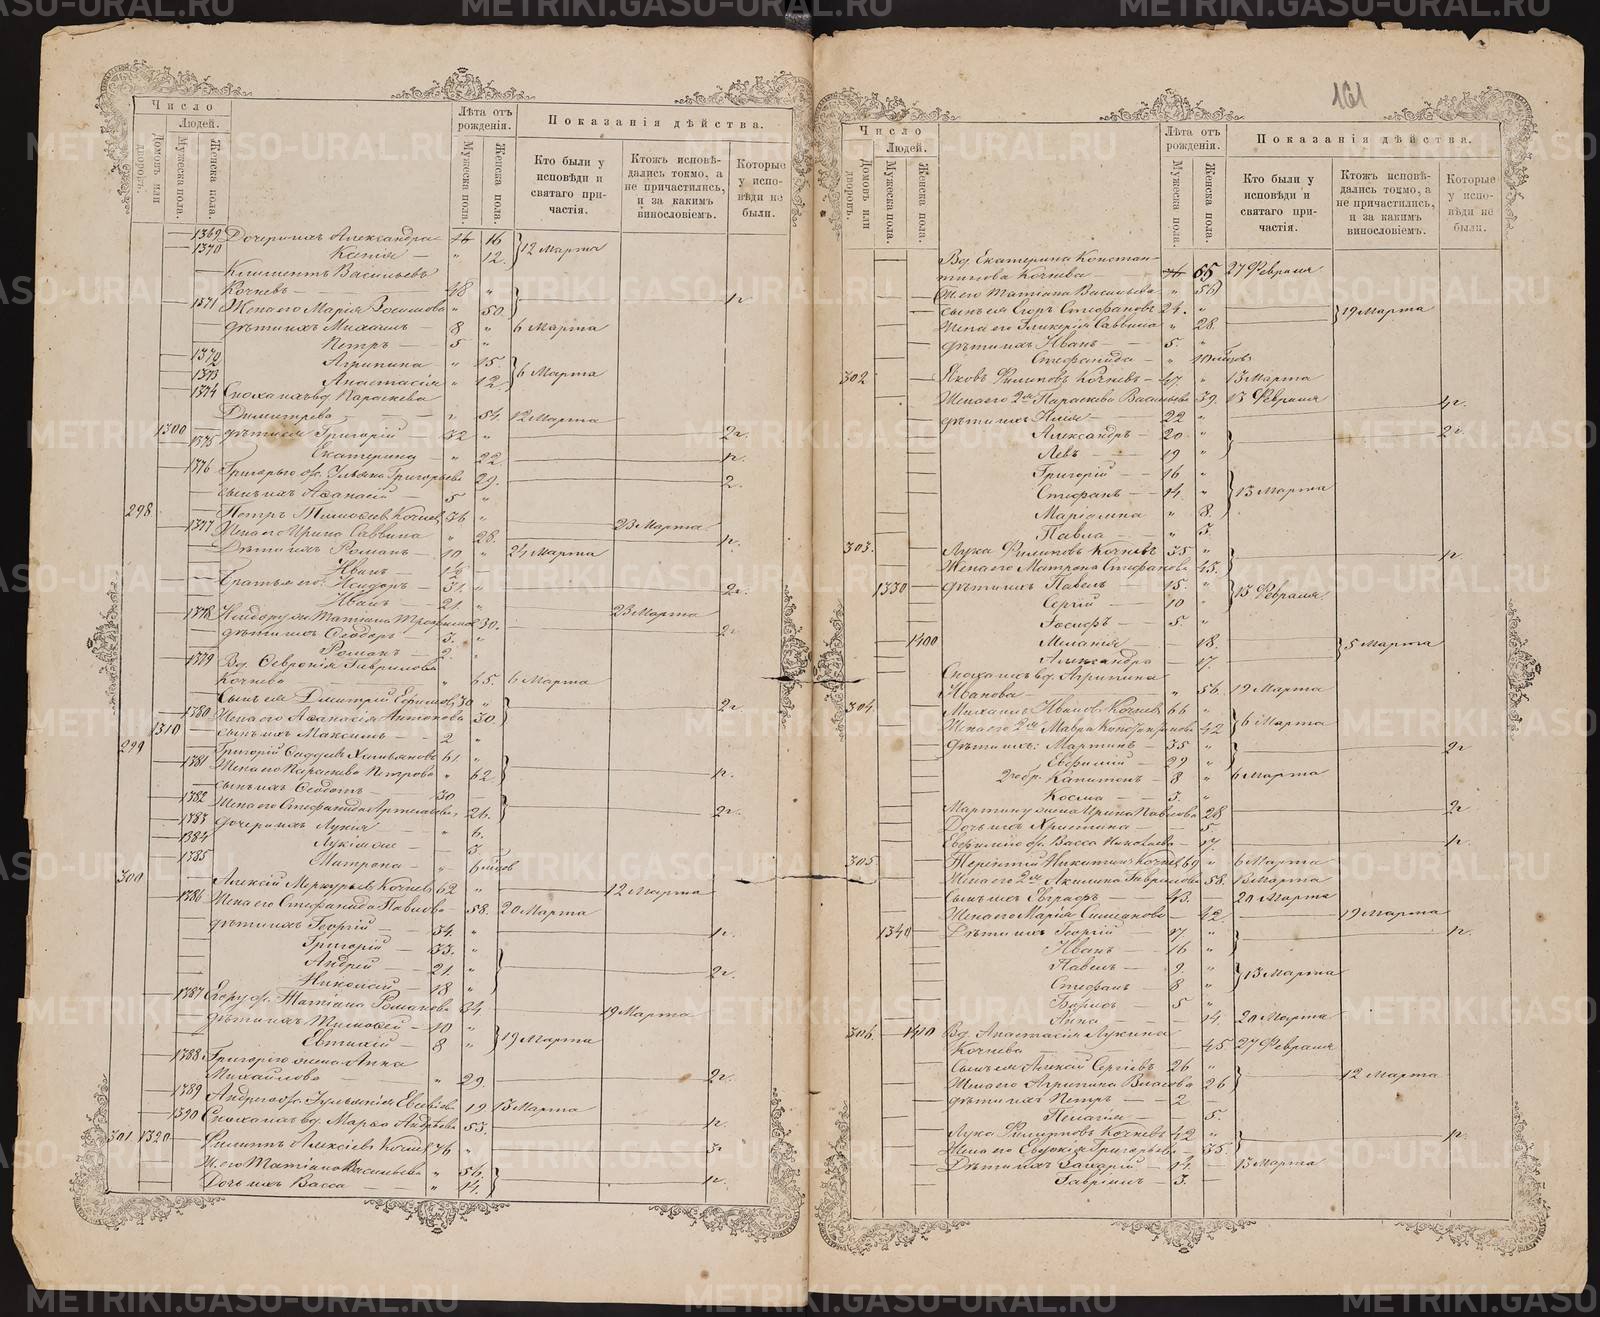 161
Число
Людей.
Домовъ или дворовъ.
Мужеска пола.
Женска пола.
Лѣта отъ рожденія.
Мужеска пола.
Женска пола.
Показанія дѣйства.
Кто были у исповѣди и святаго причастія.
Ктожъ исповѣдались токмо, а не причастились, и за какимъ винословіемъ.
Которые у исповѣди не были.
1369 Дочери ихъ Александра 16
1370 Ксенія — " 12. 12 Марта
Климентъ Васильевъ
Кочневъ — 48 "
1371 Жена его Марія " 50.
дѣти ихъ Михаилъ — 8 " 6 Марта
Петръ — 5 "
1372 Агрипина " 15.
1373 Анастасія " 12. 6 Марта
1374 Сноха ихъ вд. Параскева
Димитріева " 54. 12 Марта
1300 1375 дѣти ея Григорій — 32 " 2г.
Екатерина — " 22.
1376 Григорью ж. Ульяна Григорьева 29. 2.
сынъ ихъ Аѳанасій — 5 "
298 Петръ Тимоѳеевъ Кочневъ 36 " 23 Марта
1377 Жена его Ирина Саввина " 28.
Дѣти ихъ Романъ — 10 " 24 Марта
Иванъ — 1½
Братья его: Исидоръ — 31. " 2г.
Иванъ — 21. "
1378 Исидору ж. Татіана 30. 23 Марта
дѣти ихъ Ѳеодоръ — 3. " 2г.
Романъ — 2. "
1379 Вд. Февронія Гаврилова
Кочнева " 65. 6 Марта
Сынъ ея Дмитрій 30 " 2г.
1380 Жена его Аѳанасія Антонова 30.
1310 сынъ ихъ Максимъ — 2 "
299 Григорій 61 "
1381 Жена его Параскева Петрова " 62.
сынъ ихъ Ѳеодотъ — 30 —
1382 Жена его Стефанида 26. 2г.
1383 Дочери ихъ Лукія — " 6.
1384 — 3.
1385 Матрона — " 6
300 Алексій Меркурьевъ Кочневъ 62 " 12 Марта
1386 Жена его Стефанида Павлова 58. 20 Марта
дѣти ихъ Георгій — 34 "
Григорій — 33. "
Андрей — 21. " 2г.
18 "
1387 Егору ж. Татіана Романова 34 19 Марта
дѣти ихъ Тимоѳей — 10 "
Евтихій — 8 " 19 Марта
1388 Григорію жена Анна
Михайлова " 29. 2г.
1389 Андрею ж. 19 13 Марта
1390 Сноха ихъ вд. Марѳа Андреева 53.
301 1320 Филиппъ Алексіевъ Кочневъ 36 "
Ж. его Татіана Васильева " 36.
Дочь ихъ Васса — " 14.
Число
Людей.
Домовъ или дворовъ.
Мужеска пола.
Женска пола.
Лѣта отъ рожденія.
Мужеска пола.
Женска пола.
Показанія дѣйства.
Кто были у исповѣди и святаго причастія.
Ктожъ исповѣдались токмо, а не причастились, и за какимъ винословіемъ.
Которые у исповѣди не были.
Вд. Екатерина Констан-
тинова Кочнева — 65 27 Февраля
Татіана Васильева " 36
сынъ ея Егоръ Стефановъ 24. " 19 Марта
Жена его Гликерія Саввина " 28.
дѣти ихъ Иванъ — 5. "
Стефанида — " 10
302 Яковъ Филиповъ Кочневъ — 47. " 13 Марта
Жена его Параскева Васильева 39. 13 Февраля
дѣти ихъ Илія — 22 "
Александръ — 20 " 2г.
Левъ — 19 "
Григорій — 16 "
Стефанъ — 14. " 13 Марта
" 8.
Павла — " 3.
303. Лука Филиповъ Кочневъ 35 "
Жена его Матрона Стефанова 45.
1330 дѣти ихъ Павелъ — 15. "
Сергій — 10 " 13 Февраля
Іосифъ — 5. "
1400 Меланія — 18. 5 Марта
Александра — 17.
Сноха ихъ вд. Агрипина
Иванова — " 56. 19 Марта
304 Михаилъ Ивановъ Кочневъ 66 "
Жена его Мавра 42 6 Марта
Дѣти ихъ: Мартинъ — 35 " 2г
Евфимій — 29 "
Капитонъ — 8 " 6 Марта
Косма — 3. "
Мартину жена Ирина Павлова 28 2г
Дочь ихъ Христина — 5
Евфимію ж. Васса Николаева
305 Терентій Никитинъ Кочневъ 69 " 6 Марта
Жена его Акилина Гаврилова 58. 13 Марта
Сынъ ихъ Евграфъ — 43. 20 Марта
Жена его Марія Симеонова 42. 19 Марта
1340 Дѣти ихъ Георгій — 17 "
Иванъ — 16 "
Павелъ — 9. " 13 Марта
Стефанъ — 8 "
Борисъ — 5 "
Анна — 14. 20 Марта
306. 1410 Вд. Анастасія Лукина
Кочнева — 45. 27 Февраля
Сынъ ея Алексій Сергіевъ 26 "
Жена его Агрипина Власова 26 12 Марта
дѣти ихъ Петръ — 2 —
Пелагія — 5.
Лука Кочневъ 42 "
Жена его Евдокія Григорьева 35.
Дѣти ихъ Захарій — 14. 13 Марта
Гавріилъ — 3. —
METRIKI.GASO-URAL.RU